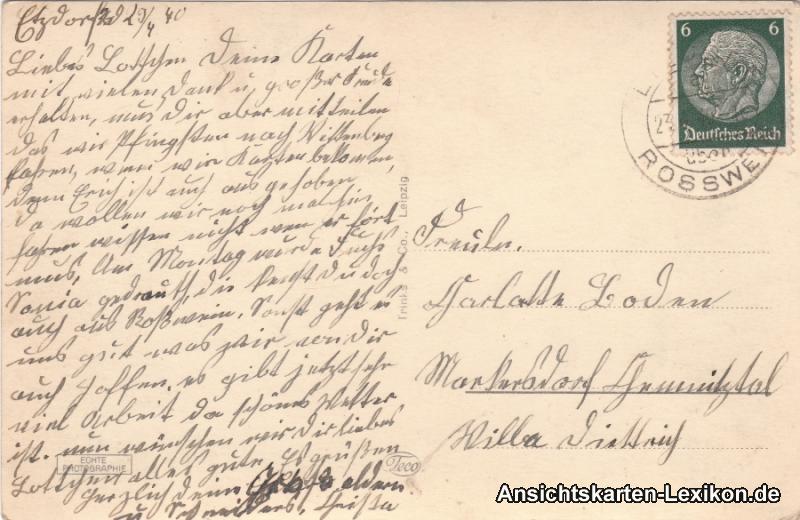 Etzdorf d 23/4 40
Liebes Lottchen Deine Karten
mit vielen Dank u. großer Freude
erhalten, muß dir aber mitteilen
das wir Pfingsten nach Wittenberg
fahren, wenn wir Karten bekommen,
denn Erich ist auch ausgehoben
da wollen wir noch mal hin
fahren wissen nicht wen er fort
muß. Am Montag wurde
Sonia getraut, die kennst du doch
auch aus Roßwein. Sonst geht es
uns gut was wir von dir
auch hoffen. es gibt jetzt sehr
viel Arbeit da schönes Wetter
ist. nun wünschen wir dir liebes
Lottchen alles gute. Es grüßen
herzlich deine
u.
ECHTE
PHOTOGRAPHIE
Trinks & Co., Leipzig
6 6
Deutsches Reich
ROSSWEIN
Fräuln.
Charlotte Boden
Markersdorf Chemnitztal
Villa Dietrich
Ansichtskarten-Lexikon.de